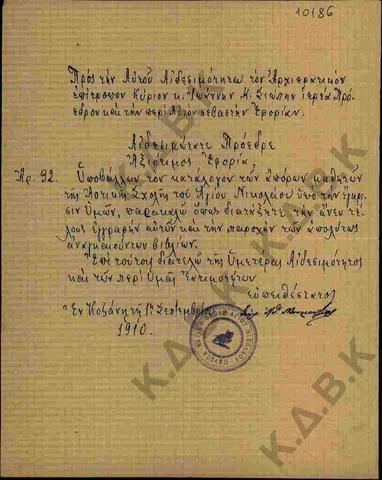 10186
Πρὸς τὴν Αὐτοῦ Αἰδεσιμότητα τὸν Ἀρχιερατικὸν
ἐπίτροπον Κύριον κ. Ἰωάννην Κ. Σιώπην ἱερέα Πρό-
εδρον καὶ τὴν περὶ Αὐτὸν σεβαστὴν Ἐφορίαν.
Αἰδεσιμώτατε Πρόεδρε
Ἀξιότιμος Ἐφορία
Ἀρ. 92. Ὑποβάλλων τὸν κατάλογον τῶν ἀπόρων μαθητῶν
τῆς Ἀστικῆς Σχολῆς τοῦ Ἁγίου Νικολάου ὑπὸ τὴν ἔγκρι-
σιν Ὑμῶν, παρακαλῶ ὅπως διατάξητε τὴν ἄνευ τέ-
λους ἐγγραφὴν αὐτῶν καὶ τὴν παροχὴν τῶν ἀπολύτως
ἀναγκαιούντων βιβλίων.
Ἐπὶ τούτοις διατελῶ τῆς Ὑμετέρας Αἰδεσιμότητος
καὶ τῶν περὶ Ὑμᾶς Ἐντιμοτάτων
εὐπειθέστατος
Ἐν Κοζάνῃ τῇ Σεπτεμβρίου
1910.
Κ.Δ.Β.Κ
Κ.Δ.Β.Κ
Κ.Δ.Β.Κ